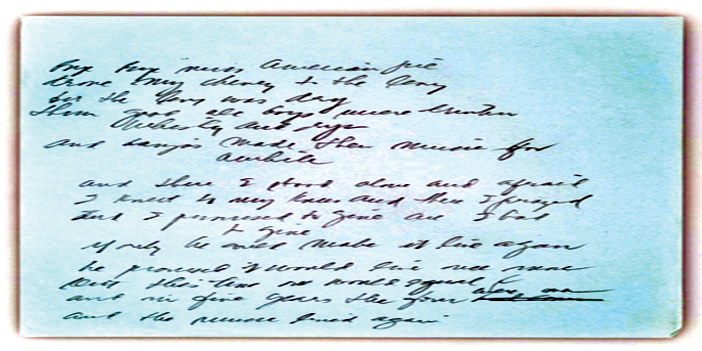 Bye Bye miss American pie
drove my chevy to the levy
but the levy was dry
Them good ole boys were drinkin
Whiskey and rye
and singin made their music for
awhile
and there I stood alone and afraid
I knelt to my knees and there I prayed
and I promised to give all I had
to give
if only he would make it live again
he promised it would live once more
but this time one would equal
and in five years the four were
and the music lived again